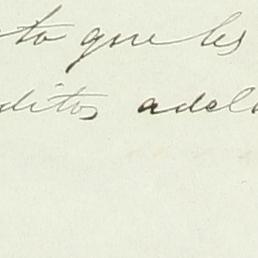 to que les
ditos adel